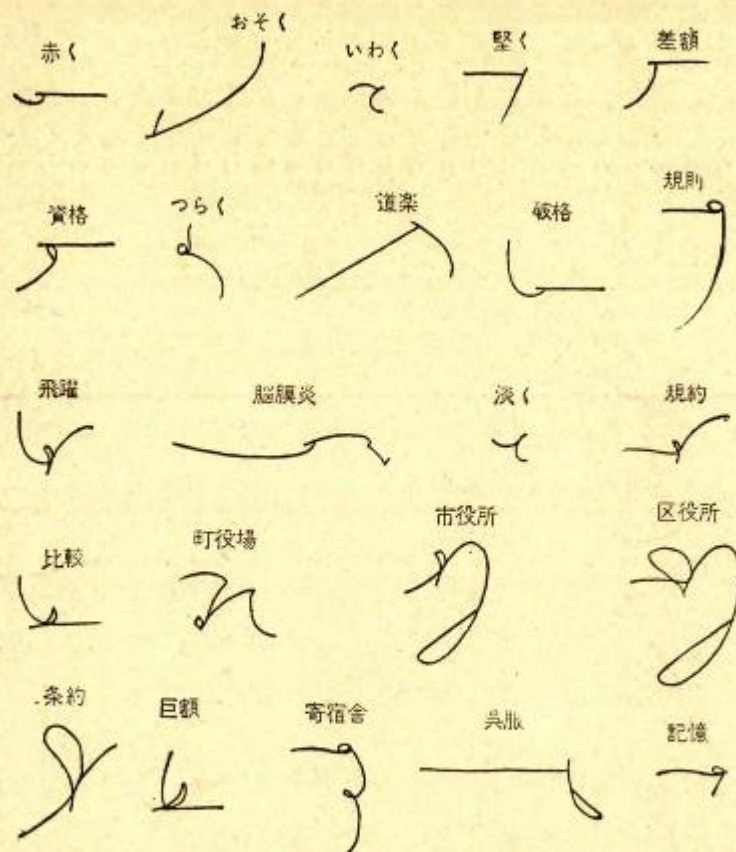 赤く おそく いわく 堅く 差額
資格 つらく 道楽 破格 規則
飛躍 脳膜炎 淡く 規約
比較 町役場 市役所 区役所
条約 巨額 寄宿舎 呉服 記憶